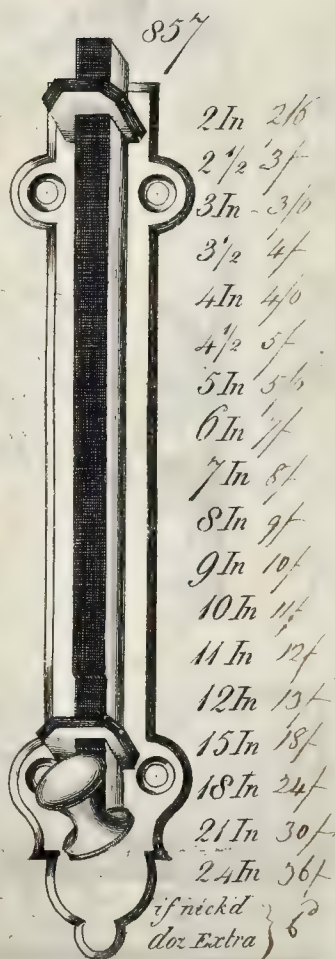 857
2 In 2/6
2 1/2 3/
3 In - 3/6
3 1/2 4/
4 In 4/6
4 1/2 5/
5 In 5/6
6 In 7/
7 In 8/
8 In 9/
9 In 10/
10 In 11/
11 In 12/
12 In 13/
15 In 18/
18 In 24/
21 In 30/
24 In 36/
if nick'd
doz Extra } 6d